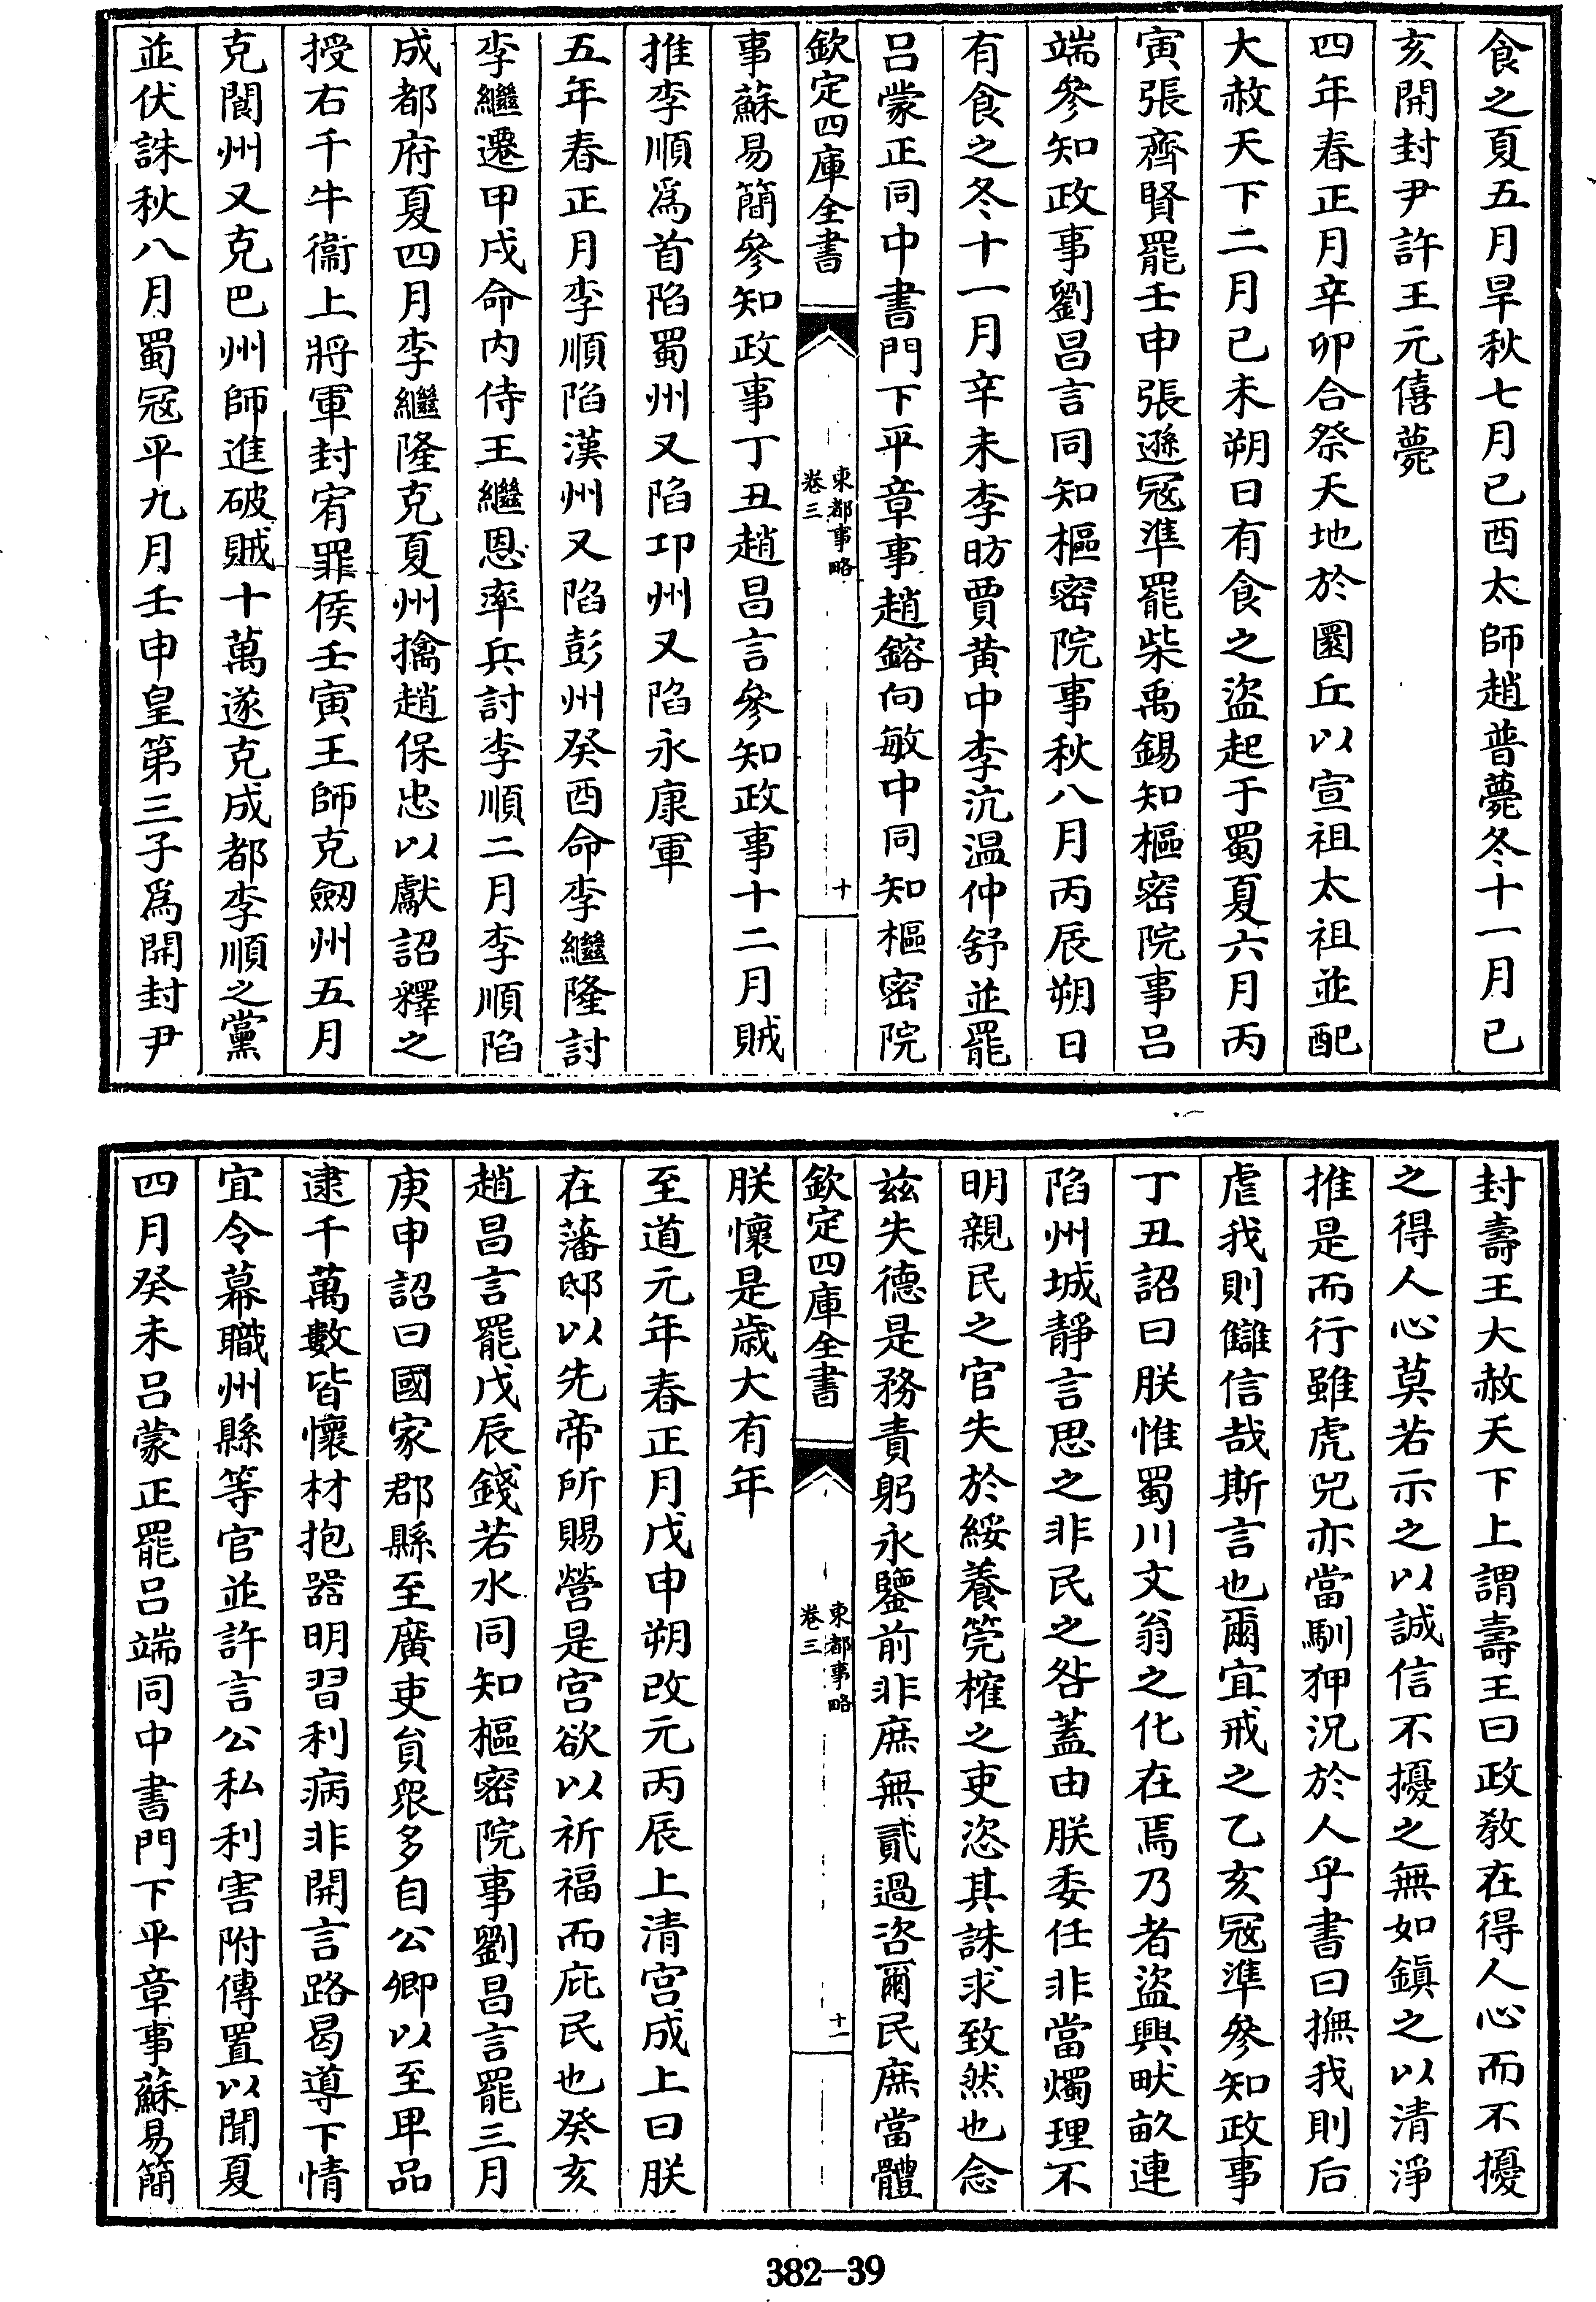 食之夏五月旱秋七月己酉太師趙普薨冬十一月己
亥開封尹許王元僖薨
四年春正月辛卯合祭天地於圜丘以宣祖太祖並配
大赦天下二月己未朔日有食之盜起于蜀夏六月丙
寅張齊賢罷壬申張遜寇準罷柴禹錫知樞密院事呂
端參知政事劉昌言同知樞密院事秋八月丙辰朔日
有食之冬十一月辛未李昉賈黃中李沆温仲舒並罷
呂蒙正同中書門下平章事趙鎔向敏中同知樞密院
欽定四庫全書
東都事略
卷三
十
事蘇易簡參知政事丁丑趙昌言參知政事十二月賊
推李順為首陷蜀州又陷邛州又陷永康軍
五年春正月李順陷漢州又陷彭州癸酉命李繼隆討
李繼遷甲戌命内侍王繼恩率兵討李順二月李順陷
成都府夏四月李繼隆克夏州擒趙保忠以獻詔釋之
授右千牛衞上將軍封宥罪侯壬寅王師克劒州五月
克閬州又克巴州師進破賊十萬遂克成都李順之黨
並伏誅秋八月蜀寇平九月壬申皇第三子為開封尹
封壽王大赦天下上謂壽王曰政教在得人心而不擾
之得人心莫若示之以誠信不擾之無如鎮之以清淨
推是而行雖虎兕亦當馴狎況於人乎書曰撫我則后
虐我則讎信哉斯言也爾宜戒之乙亥寇準參知政事
丁丑詔曰朕惟蜀川文翁之化在焉乃者盜興畎畝連
陷州城靜言思之非民之咎蓋由朕委任非當燭理不
明親民之官失於綏養筦榷之吏恣其誅求致然也念
兹失德是務責躬永鑒前非庶無貳過咨爾民庶當體
欽定四庫全書
東都事略
卷三
十一
朕懷是歲大有年
至道元年春正月戊申朔改元丙辰上清宮成上曰朕
在藩邸以先帝所賜營是宮欲以祈福而庇民也癸亥
趙昌言罷戊辰錢若水同知樞密院事劉昌言罷三月
庚申詔曰國家郡縣至廣吏員衆多自公卿以至卑品
逮千萬數皆懷材抱器明習利病非開言路曷導下情
宜令幕職州縣等官並許言公私利害附傳置以聞夏
四月癸未呂蒙正罷呂端同中書門下平章事蘇易簡
382-39